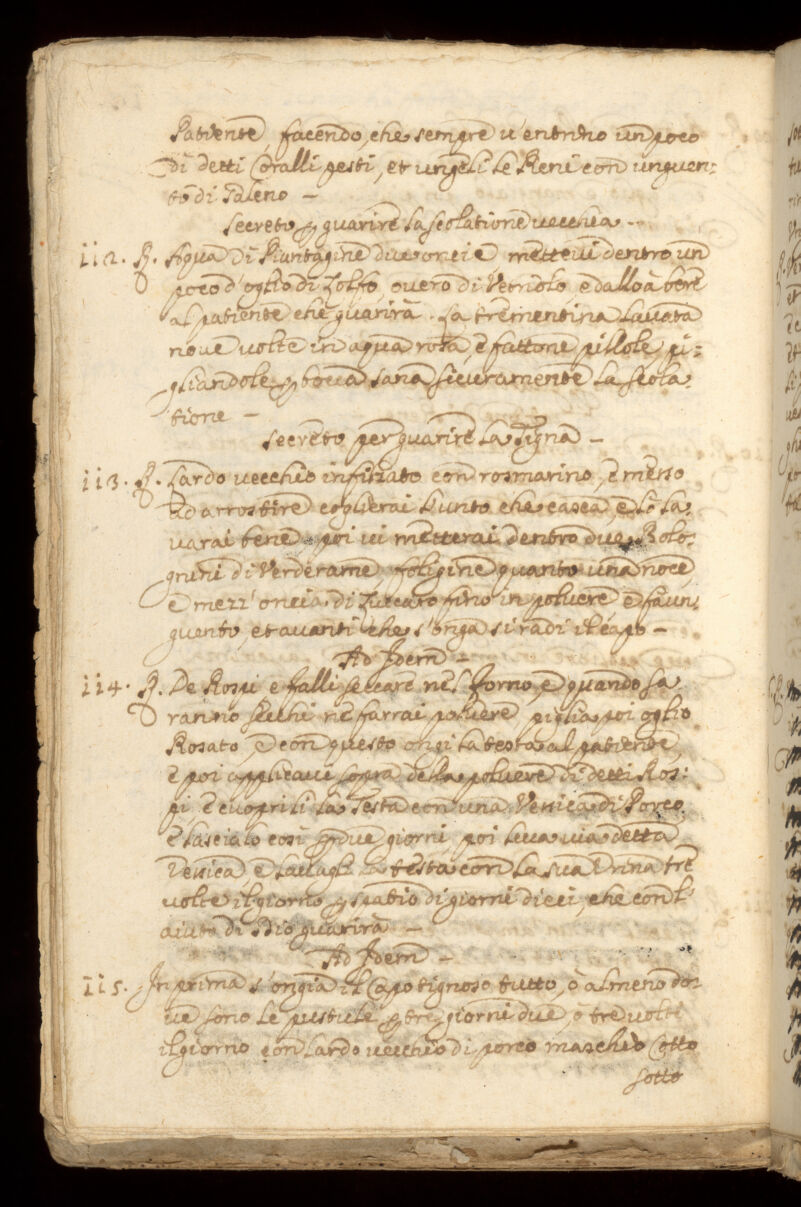 Patiente, facendo, che sempre v'entrino un poco
di detti Coralli pesti, et ungeli le Reni con unguen:
to di Galeno –
Secreto p guarire la scolatione vecchia –
112. R. Aqua di Piantagine due oncie mettevi dentro un
poco d'oglio di Zolfo, overo di Vetriolo, e dallo à bere
al patiente che guarirà. La trementina lavata
nove volte in aqua rosa, e fattone pillole, pi:
gliandole p bocca sana sicuramente la scola:
tione –
Secreto per guarire la Tigna –
113. R. Lardo vecchio infilzato con rosmarino, e messo
ad arrostire coglierai l'unto che casca, e lo la:
varai bene, poi vi metterai dentro due Bolo:
gnini di Verderame, foligine quanto una noce,
e mezz'oncia di Zuccaro fino in polvere e fà un:
guento, et avanti che s'onga si radi il capo –
Ad Idem –
114. R. De Rospi e falli seccare nel Forno, e quando sa
ranno secchi ne farrai polvere, piglia poi oglio
Rosato, e con questo ongi la testa al patiente,
e poi applicavi sopra della polvere di detti Ros:
pi, e cuoprili la Testa con una Vessica di Porco,
e lascialo così p due giorni, poi leva via detta
Vessica, e lavagli la testa con la sua Urina tre
volte il giorno p spatio di giorni dieci, che con l'
aiuto di Dio guarirà –
Ad Idem –
115. In prima s'ongia il Capo tignoso tutto, ò almeno do:
ve sono le pustule p tre giorni due, ò tre volte
il giorno con Lardo vecchio di porco maschio Cotto
sotto